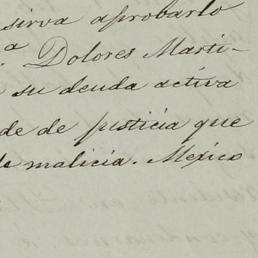 sirva aprobarlo
ª Dolores Marti-
su deuda activa
de de justicia que
de malicia. Mexico